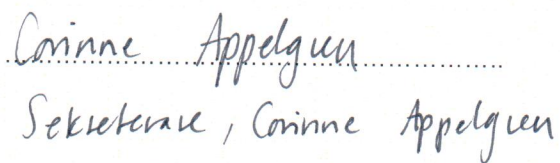 Corinne Appelgren
Sekreterare, Corinne Appelgren